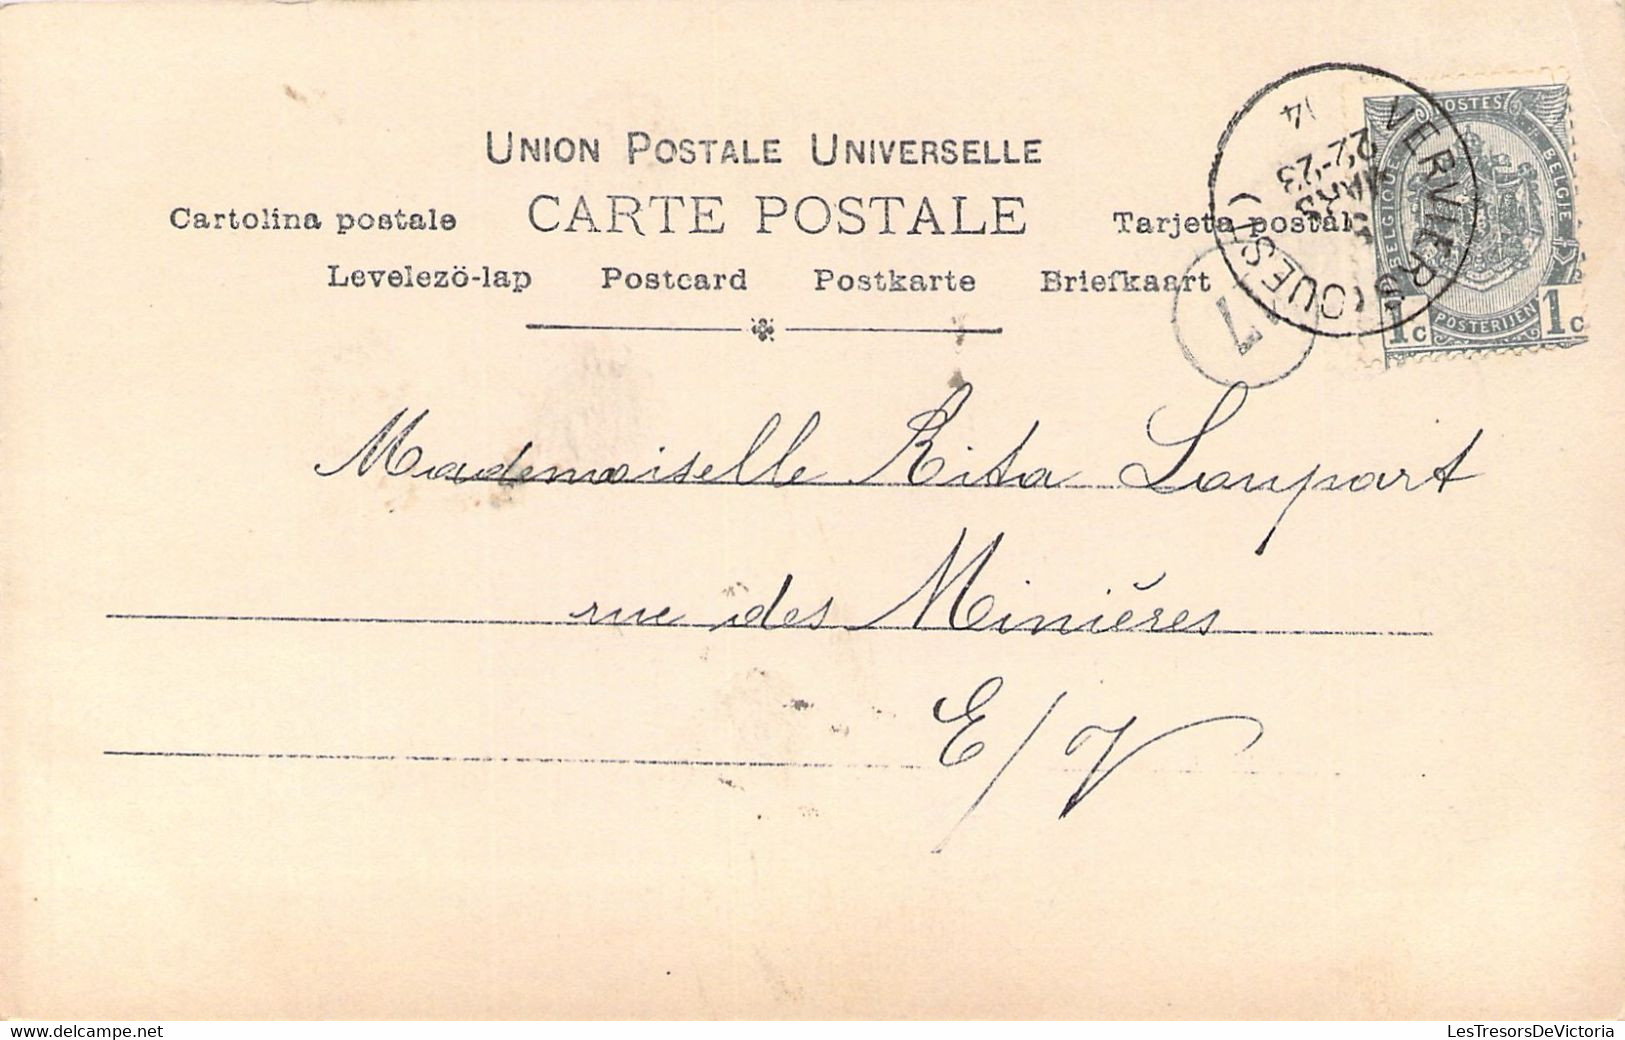 UNION POSTALE UNIVERSELLE
Cartolina postale CARTE POSTALE Tarjeta postal
Levelezö-lap Postcard Postkarte Briefkaart
POSTES
BELGIQUE BELGIË
1c POSTERIJEN 1c
VERVIERS (OUEST)
22-23
14
17
Mademoiselle Rita Loupart
rue des Minières
E/V
delcampe.net
LesTresorsDeVictoria